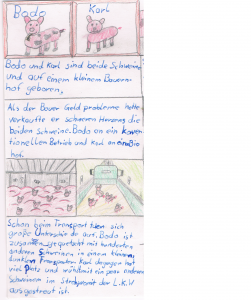 Bodo Karl
Bodo und Karl sind beide Schweine
und auf einem kleinem Bauern
hof geboren.
Als der Bauer Geld probleme hatte
verkaufte er schweren Herzens die
beiden Schweine. Bodo an ein konven
tionellen Betrieb und Karl an ein Bio
hof.
Schon beim Transport tuen sich
große Unterschiede auf. Bodo ist
zusammen gequetscht mit hunderten
anderen Schweinen in einem kleinem,
dunklen Transporter. Karl dagegen hat
viel Platz und wird mit ein paar anderen
Schweinen im Stroh mit der L.K.W
ausgestreut ist.